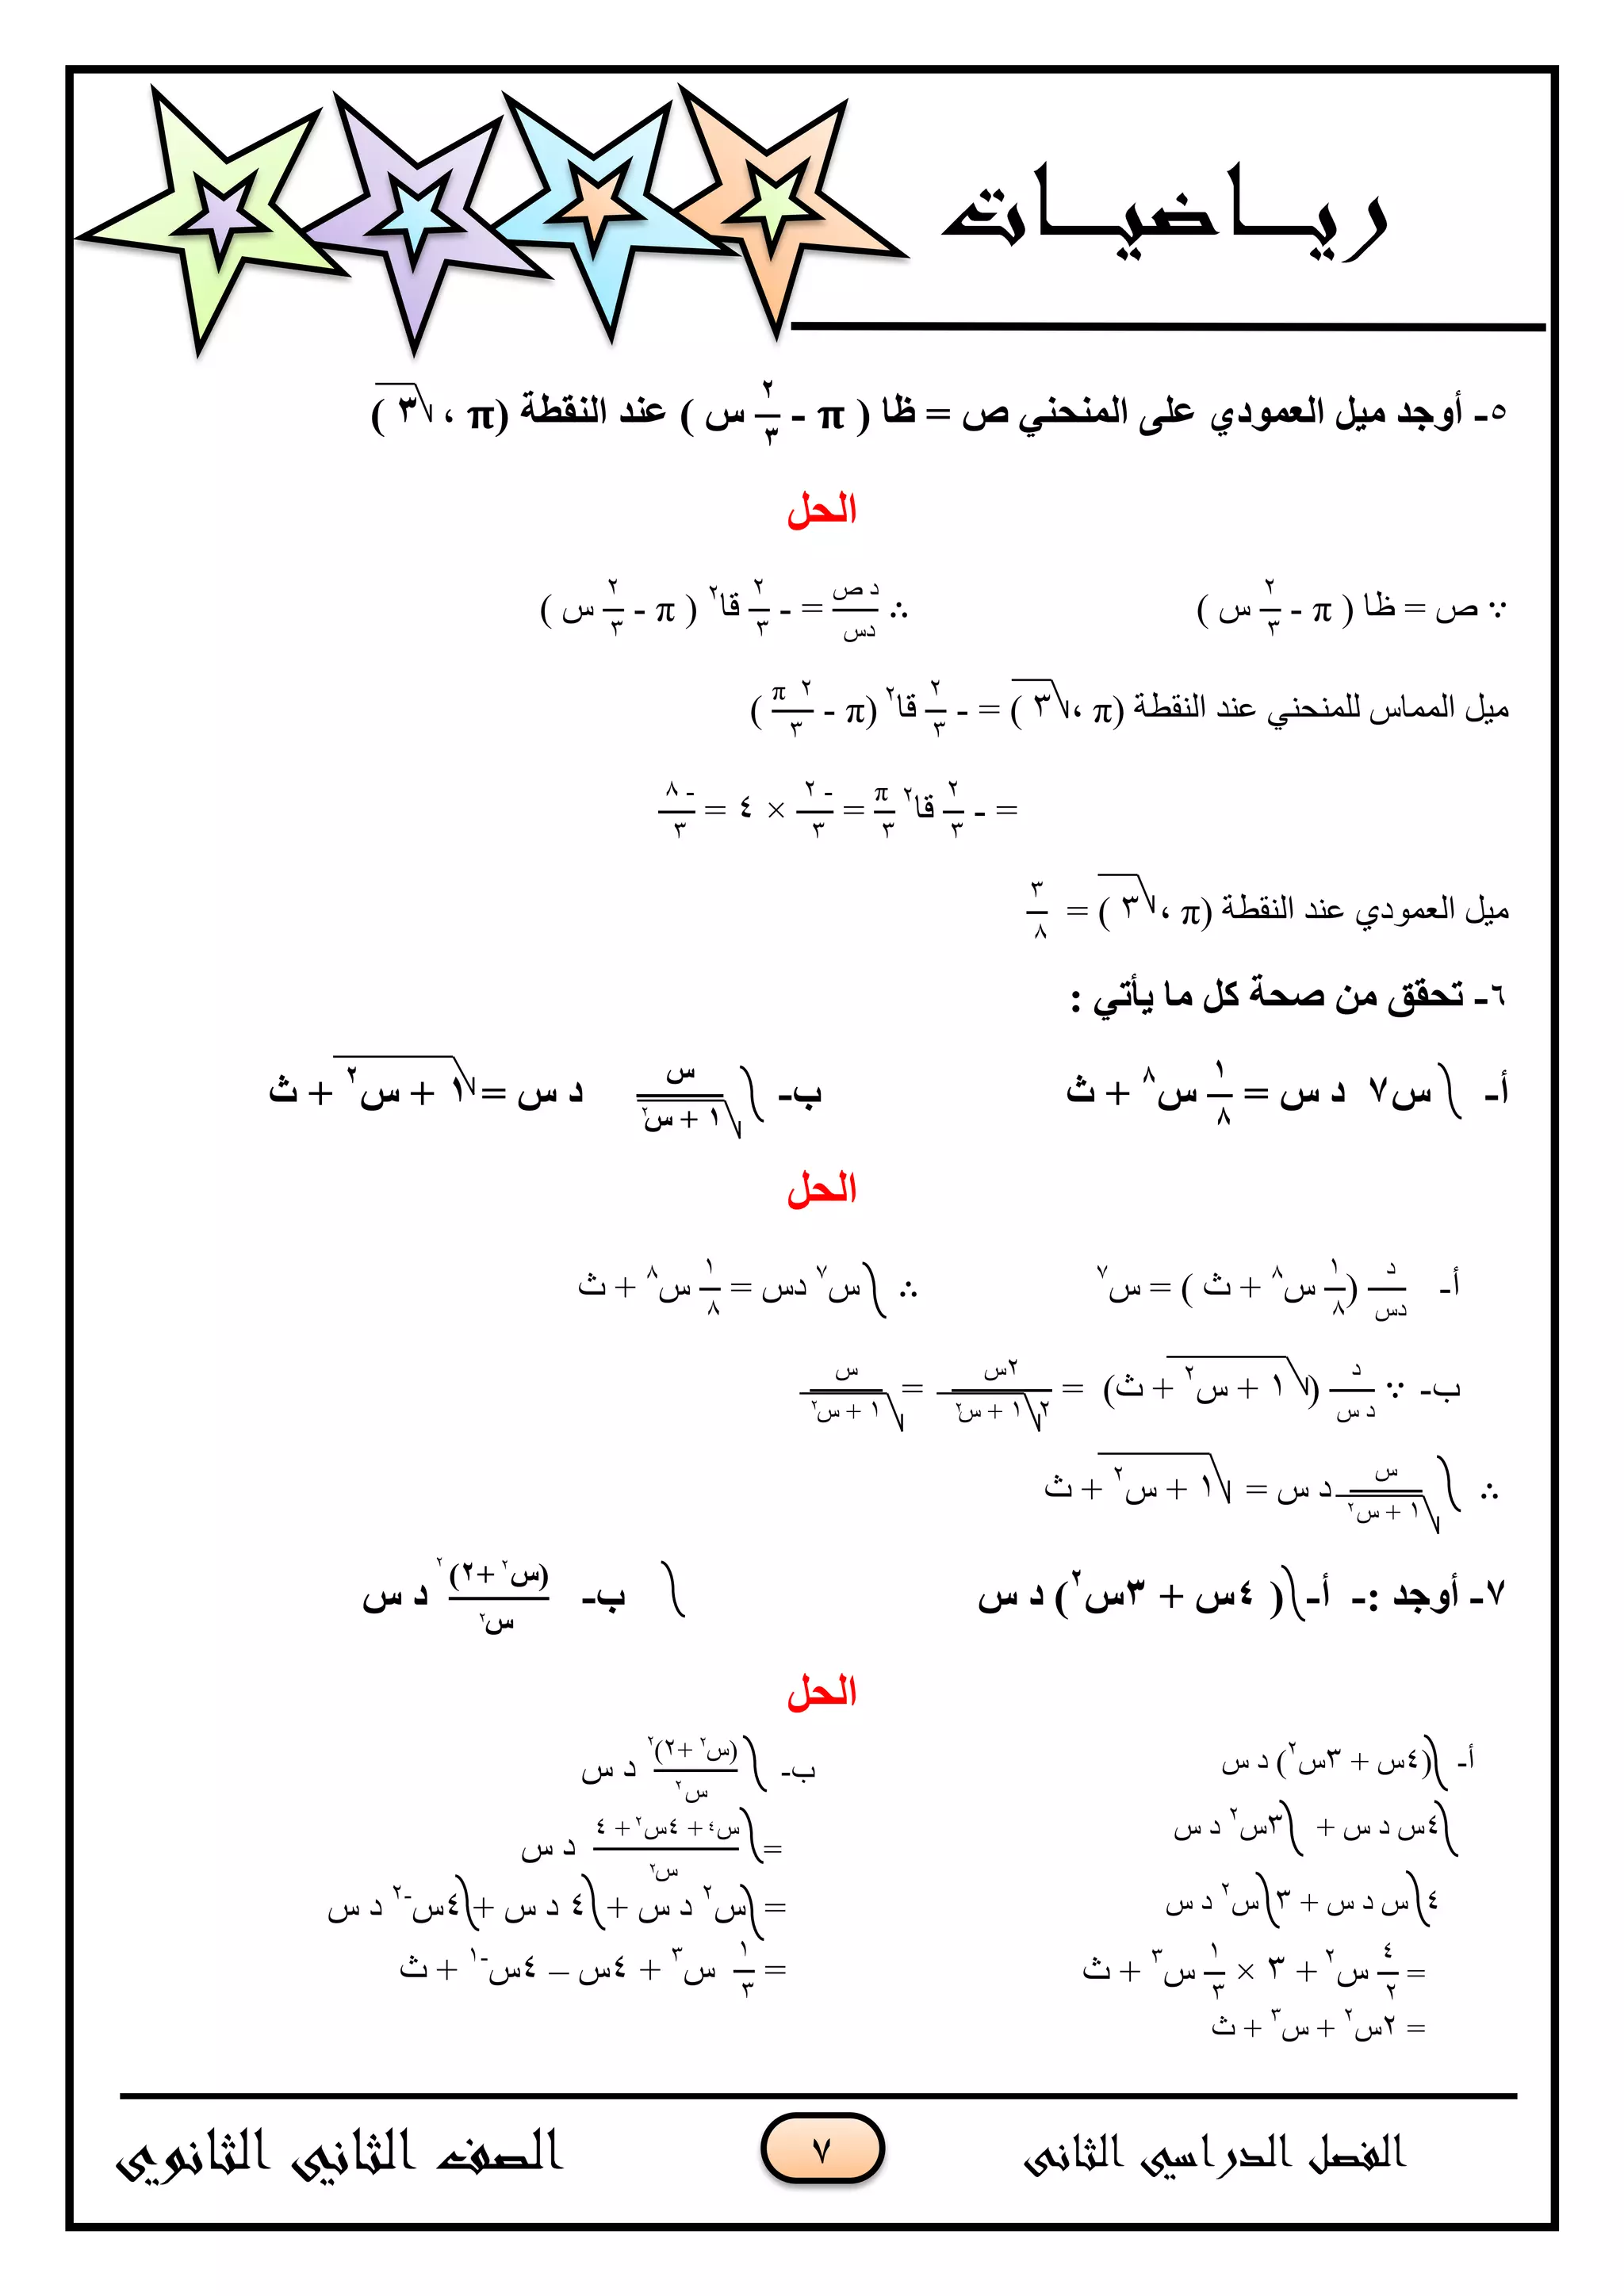 رياضيات
٥- أوجد ميل العمودي على المنحني ص = ظا ( π - ٢/٣ س ) عند النقطة (π ، √٣ )
الحل
∵ ص = ظا ( π - ٢/٣ س ) ∴ د ص/دس = - ٢/٣ قا٢ ( π - ٢/٣ س )
ميل المماس للمنحني عند النقطة (π ، √٣ ) = - ٢/٣ قا٢ (π - ٢π/٣ )
= - ٢/٣ قا٢ π/٣ = -٢/٣ × ٤ = -٨/٣
ميل العمودي عند النقطة (π ، √٣ ) = ٣/٨
٦- تحقق من صحة كل ما يأتي :
أ- ∫ س٧ د س = ١/٨ س٨ + ث ب- ∫ س/√(١ + س٢) د س = √(١ + س٢) + ث
الحل
أ- د/دس (١/٨ س٨ + ث ) = س٧ ∴ ∫ س٧ دس = ١/٨ س٨ + ث
ب- ∵ د/د س (√(١ + س٢) + ث) = ٢س/٢√(١ + س٢) = س/√(١ + س٢)
∴ ∫ س/√(١ + س٢) د س = √(١ + س٢) + ث
٧- أوجد :- أ- ∫( ٤س + ٣س٢) د س ب- ∫ (س٢ +٢)٢/س٢ د س
الحل
أ- ∫(٤س + ٣س٢) د س
∫٤س د س + ∫٣س٢ د س
٤∫س د س + ٣∫س٢ د س
= ٤/٢ س٢ + ٣ × ١/٣ س٣ + ث
= ٢س٢ + س٣ + ث
ب- ∫ (س٢ +٢)٢/س٢ د س
= ∫ س٤ + ٤س٢ + ٤/س٢ د س
= ∫س٢ د س + ∫٤ د س + ∫٤س-٢ د س
= ١/٣ س٣ + ٤س – ٤س-١ + ث
الفصل الدراسي الثانى
٧
الصف الثاني الثانوي